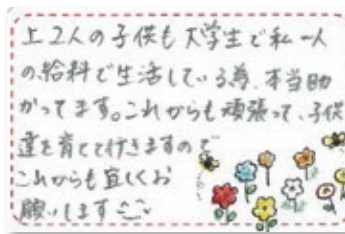 上2人の子供も大学生で私一人
の給料で生活している為、本当助
かってます。これからも頑張って、子供
達を育てて行きますので
これからも宜しくお
願いします